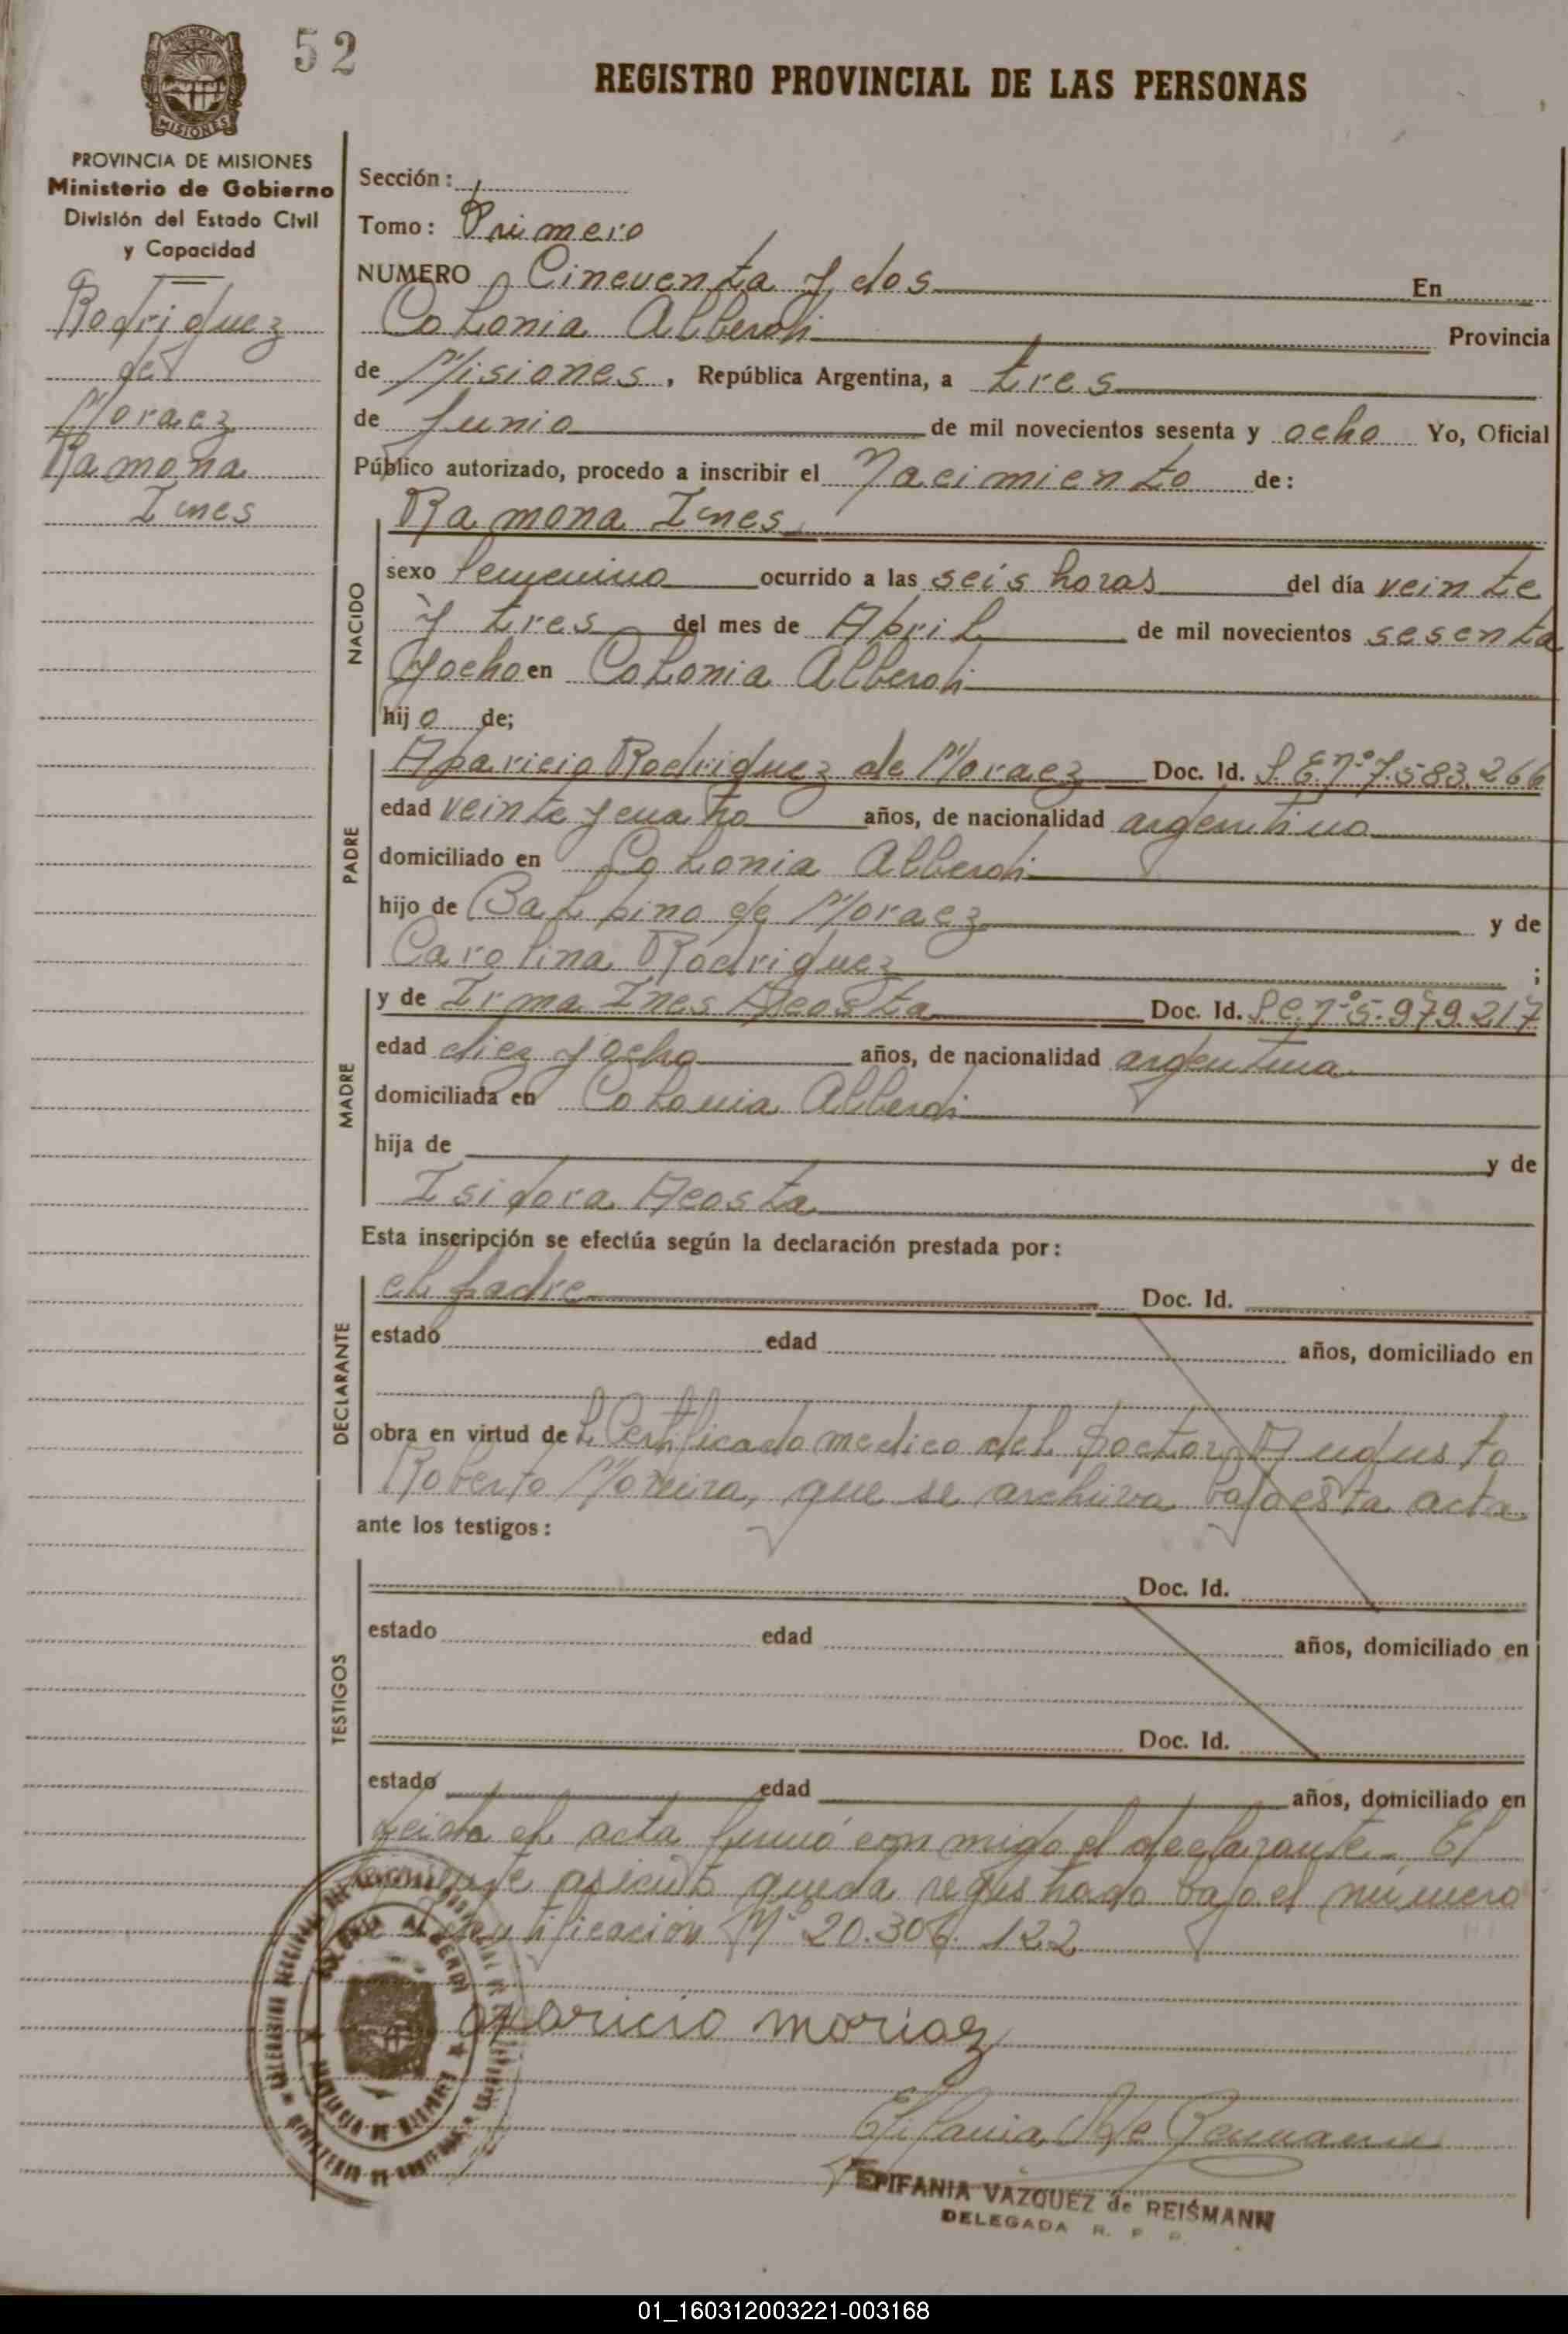 52
REGISTRO PROVINCIAL DE LAS PERSONAS
PROVINCIA DE MISIONES
Ministerio de Gobierno
División del Estado Civil
y Capacidad
Rodriguez
de
Moraez
Ramona
Ines
Sección:
Tomo: Primero
NUMERO Cincuenta y dos En
Colonia Alberdi Provincia
de Misiones, República Argentina, a tres
de Junio de mil novecientos sesenta y ocho Yo, Oficial
Público autorizado, procedo a inscribir el Nacimiento de:
Ramona Ines
NACIDO
sexo femenino ocurrido a las seis horas del día veinte
y tres del mes de Abril de mil novecientos sesenta
y ocho en Colonia Alberdi
hijo de;
PADRE
Aparicio Rodriguez de Moraez Doc. Id. L.E. nº 7.583.266
edad veinte y cuatro años, de nacionalidad argentino
domiciliado en Colonia Alberdi
hijo de Balbino de Moraez y de
Carolina Rodriguez ;
MADRE
y de Irma Ines Acosta Doc. Id. L.C. nº 5.979.217
edad diez y ocho años, de nacionalidad argentina
domiciliada en Colonia Alberdi
hija de y de
Isidora Acosta
Esta inscripción se efectúa según la declaración prestada por:
DECLARANTE
el padre Doc. Id.
estado edad años, domiciliado en
obra en virtud del Certificado medico del Doctor Augusto
Roberto Moreira, que se archiva bajo esta acta
ante los testigos:
TESTIGOS
Doc. Id.
estado edad años, domiciliado en
Doc. Id.
estado edad años, domiciliado en
Leida el acta firmó conmigo el declarante. El
presente asiento queda registrado bajo el número
de identificación Nº 20.306.122
aparicio moriaz
EPIFANIA VAZQUEZ de REISMANN
DELEGADA R. P. P.
01_160312003221-003168